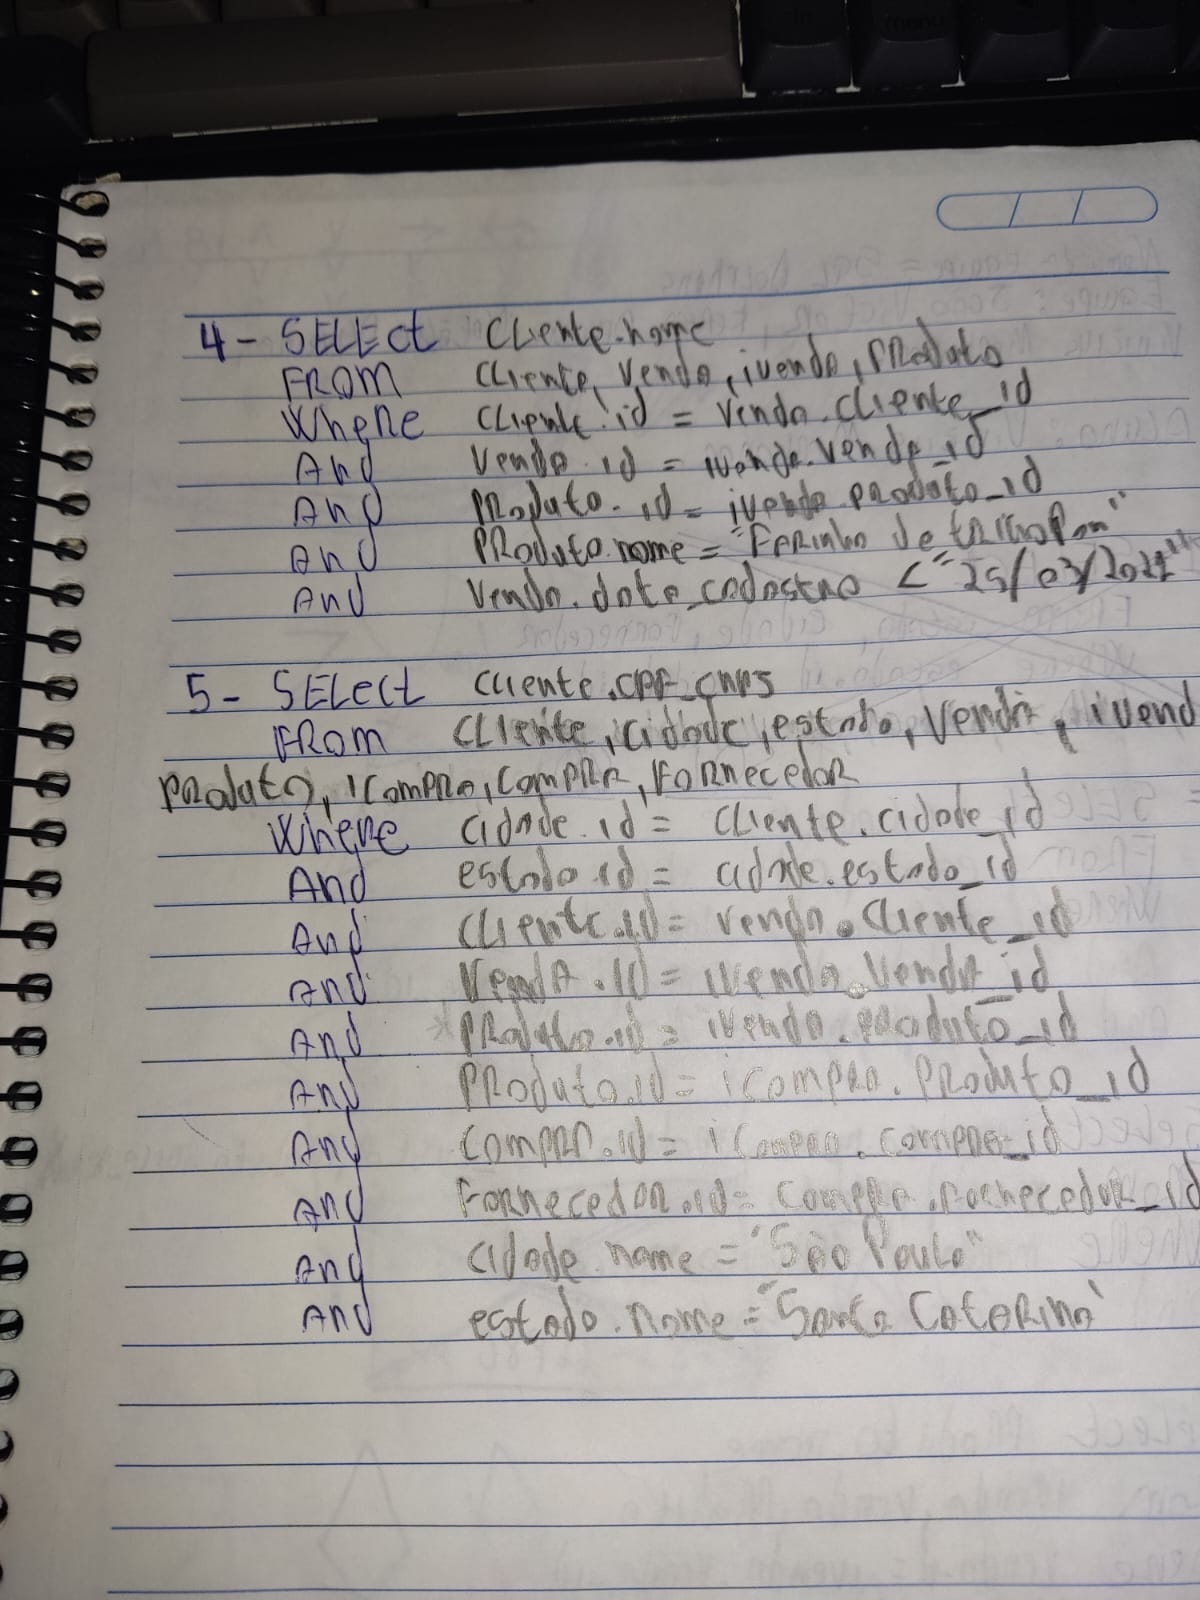 4- SELECT Cliente.nome
FROM Cliente, Venda, ivenda, Produto
Where Cliente.id = Venda.cliente_id
And Venda.id = ivenda.venda_id
And Produto.id = ivenda.produto_id
And Produto.nome = "Farinha de trigo Pan"
And Venda.data_cadastro < "25/03/2021"
5- SELECT Cliente.CPF_CNPJ
FROM Cliente, cidade, estado, Venda, ivend
Produto, icompra, Compra, Fornecedor
Where cidade.id = Cliente.cidade_id
And estado.id = cidade.estado_id
And Cliente.id = venda.Cliente_id
And Venda.id = ivenda.Venda_id
And Produto.id = ivenda.Produto_id
And Produto.id = icompra.Produto_id
And Compra.id = icompra.compra_id
And Fornecedor.id = Compra.Fornecedor_id
And Cidade.nome = "São Paulo"
And estado.nome = "Santa Catarina"